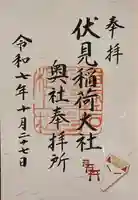 奉拝
伏見稲荷大社
奥社奉拝所
令和七年十月二十七日